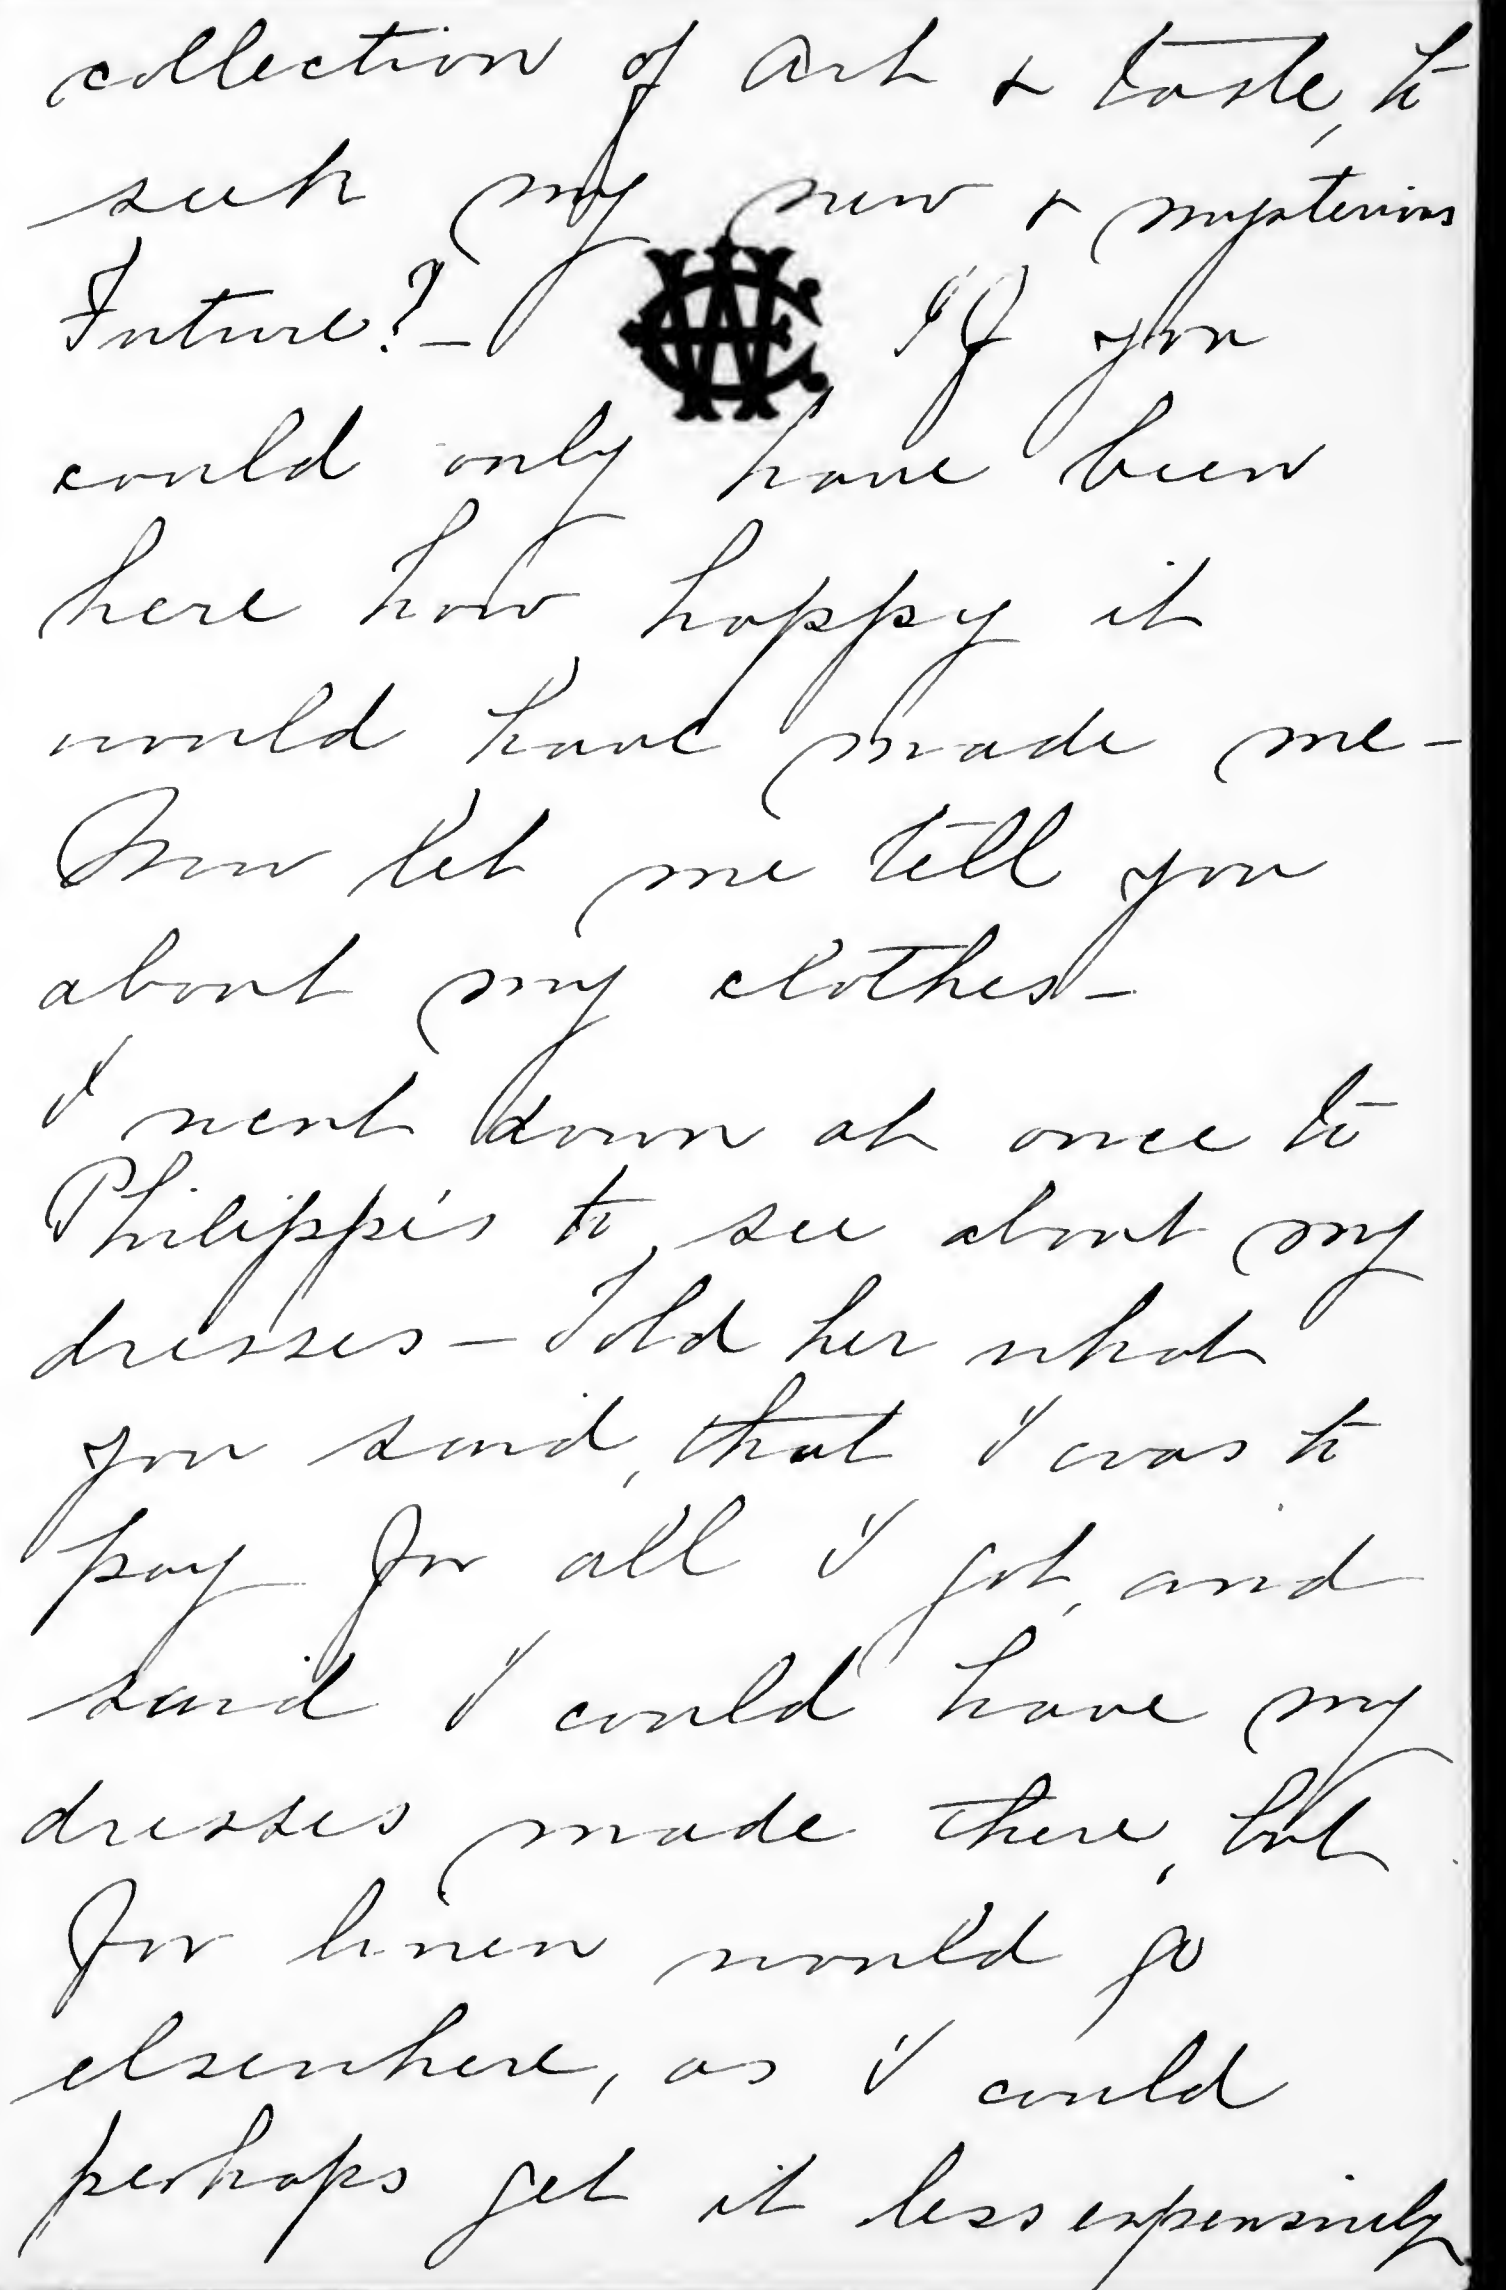 collection of Art & taste, to
seek my new & mysterious
Future? - If you
could only have been
here how happy it
would have made me -
Now let me tell you
about my clothes -
I went down at once to
Philippe's to see about my
dresses - Told her what
you said, that I was to
pay for all I got, and
said I could have my
dresses made there, but
for linen would go
elsewhere, as I could
perhaps get it less expensively